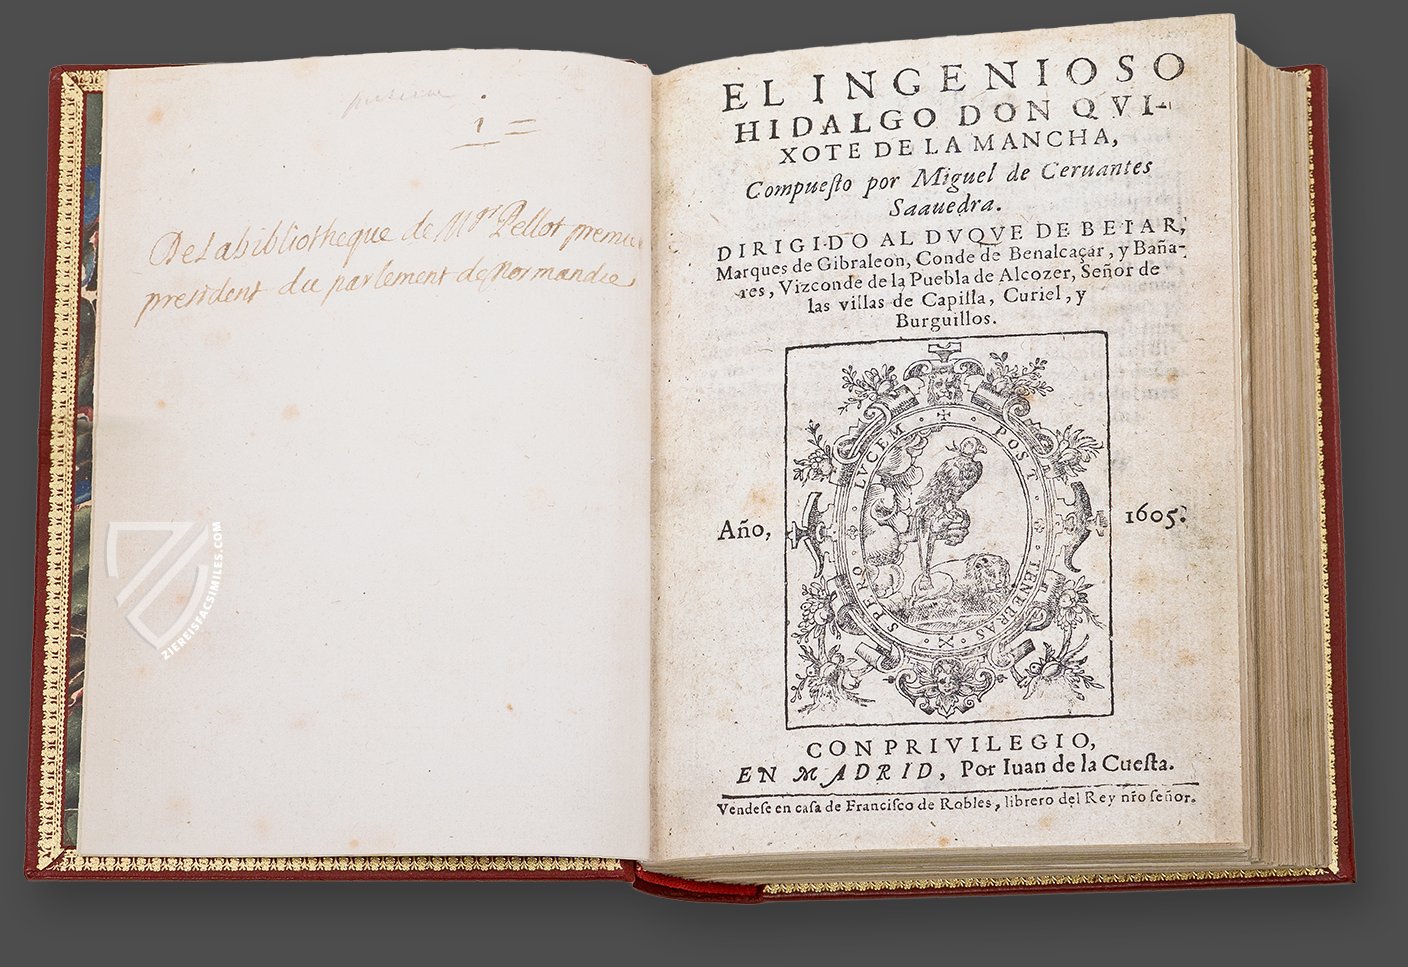 1 =
De La bibliotheque de Mgr Pellot premier
president du parlement de Normandie
EL INGENIOSO
HIDALGO DON QVI-
XOTE DE LA MANCHA,
Compuesto por Miguel de Ceruantes
Saauedra.
DIRIGIDO AL DVQVE DE BEIAR,
Marques de Gibraleon, Conde de Benalcaçar, y Baña-
res, Vizconde de la Puebla de Alcozer, Señor de
las villas de Capilla, Curiel, y
Burguillos.
POST TENEBRAS SPERO LVCEM
Año, 1605.
CON PRIVILEGIO,
EN MADRID, Por Iuan de la Cuesta.
Vendese en casa de Francisco de Robles, librero del Rey nro señor.
ZIEREISFACSIMILES.COM